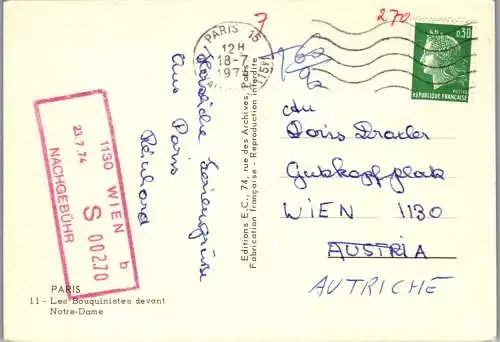 7
270
PARIS 15
12H
18-7
197
0,30
POSTES
REPUBLIQUE FRANÇAISE
Herzliche Feriengrüße
Aus Paris
Editions E.C., 74, rue des Archives, Paris
Fabrication française - Reproduction interdite
An
Doris Draxler
Gutzkopfplatz
WIEN 1130
AUSTRIA
AUTRICHE
1130 WIEN b
S 002.70
23.7.74
NACHGEBÜHR
PARIS
11 - Les Bouquinistes devant
Notre-Dame